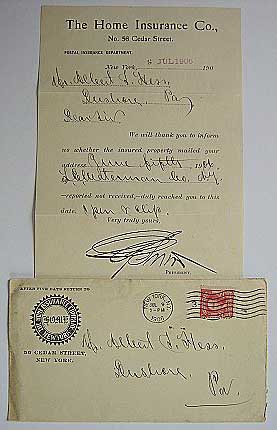 The Home Insurance Co.,
No. 56 Cedar Street.
POSTAL INSURANCE DEPARTMENT.
New York, JUL 1906 190
Mr. Albert F. Hess,
Dushore, Pa
Dear Sir
We will thank you to inform
us whether the insured property mailed your
address June fifth 1906
reported not received, duly reached you to this
date.
Very truly yours,
PRESIDENT.
AFTER FIVE DAYS RETURN TO
HOME
56 CEDAR STREET,
NEW YORK.
NEW YORK, N.Y.
JUL 9
1906
Mr. Albert F. Hess,
Dushore,
Pa.